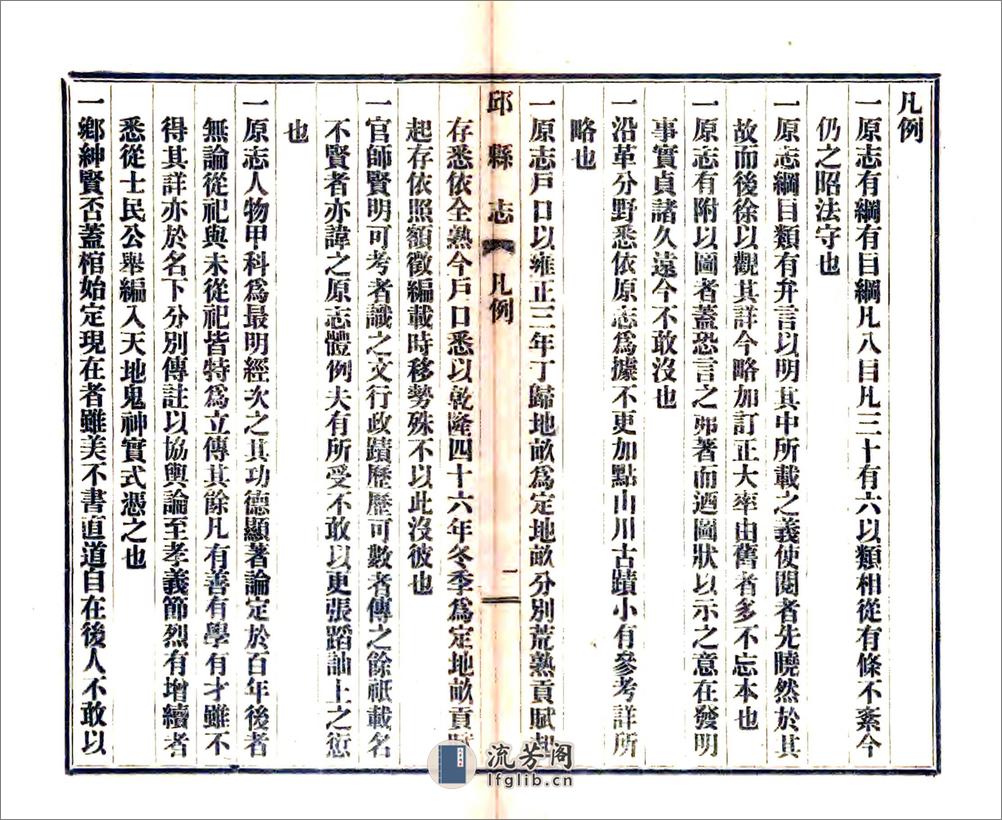 凡例
一原志有綱有目綱凡八目凡三十有六以類相從有條不紊今
仍之昭法守也
一原志綱目類有弁言以明其中所載之義使閱者先曉然於其
故而後徐以觀其詳今略加訂正大率由舊者多不忘本也
一原志有附以圖者蓋恐言之弗著而迺圖狀以示之意在發明
事實貞諸久遠今不敢沒也
一沿革分野悉依原志為據不更加點山川古蹟小有參考詳所
略也
一原志戶口以雍正三年丁歸地畝為定地畝分別荒熟貢賦起
邱縣志
凡例
一
存悉依全熟今戶口悉以乾隆四十六年冬季為定地畝貢賦
起存依照額徵編載時移勢殊不以此沒彼也
一官師賢明可考者識之文行政蹟歷歷可數者傳之餘祇載名
不賢者亦諱之原志體例夫有所受不敢以更張蹈訕上之愆
也
一原志人物甲科為最明經次之其功德顯著論定於百年後者
無論從祀與未從祀皆特為立傳其餘凡有善有學有才雖不
得其詳亦於名下分別傳註以協輿論至孝義節烈有增續者
悉從士民公舉編入天地鬼神實式憑之也
一鄉紳賢否蓋棺始定現在者雖美不書直道自在後人不敢以
流芳阁
lfglib.cn